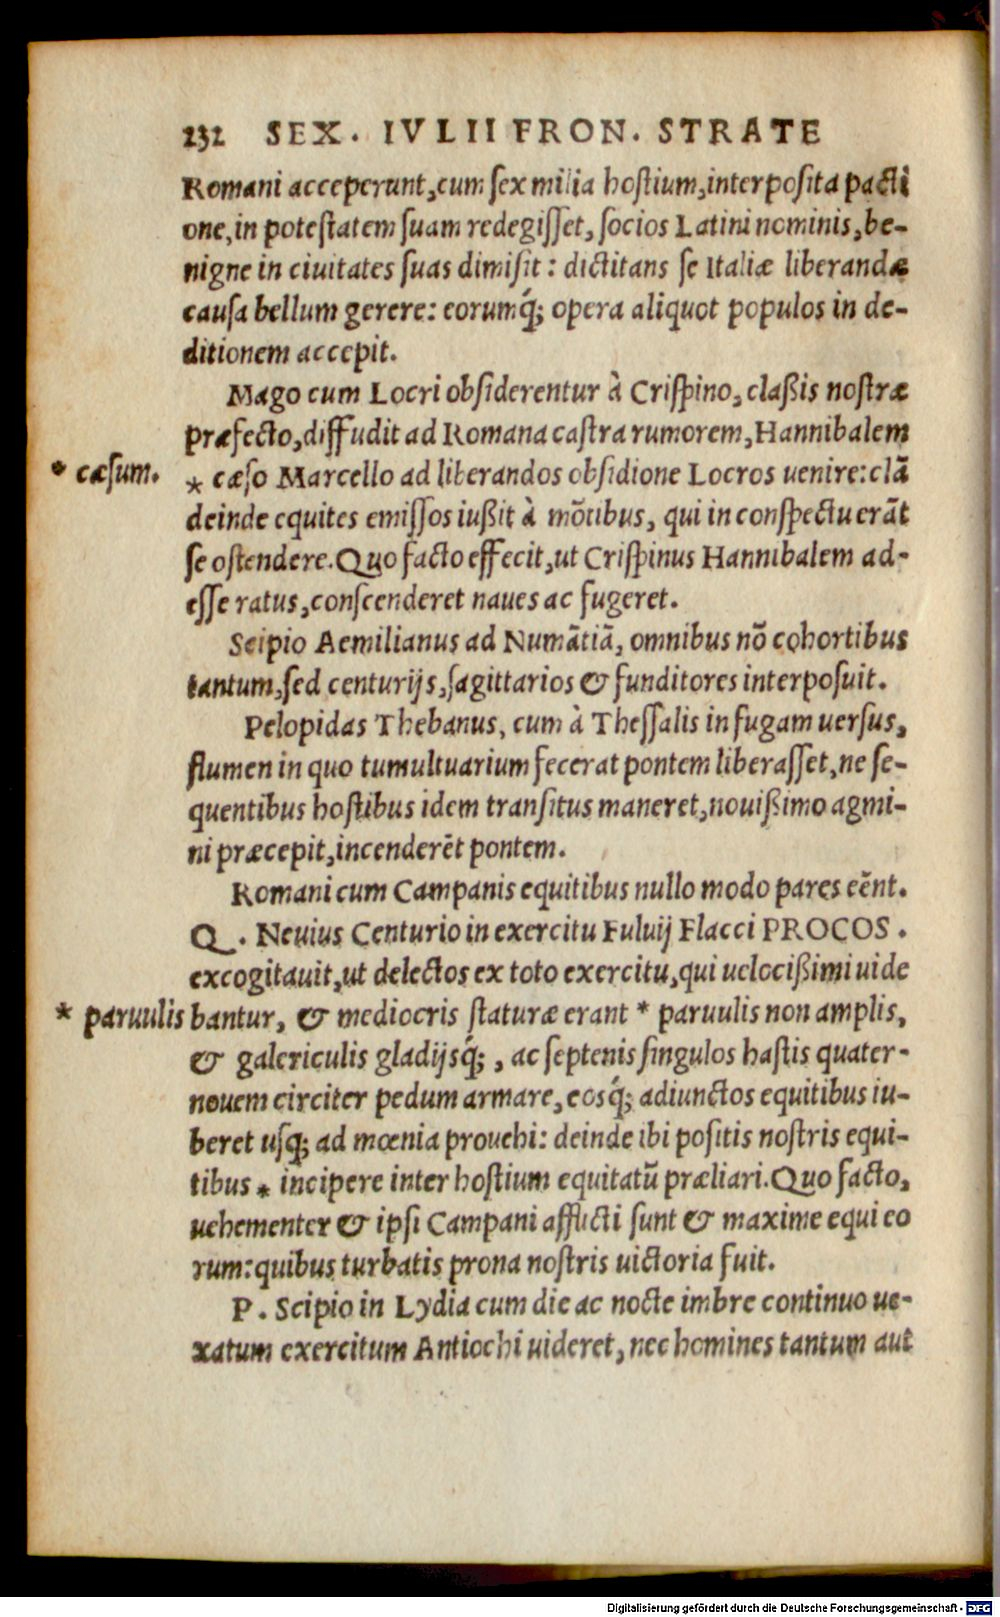 232 SEX. IVLII FRON. STRATE
Romani acceperunt, cum sex milia hostium, interposita pacti
one, in potestatem suam redegisset, socios Latini nominis, be-
nigne in ciuitates suas dimisit: dictitans se Italiæ liberandæ
causa bellum gerere: eorumq́; opera aliquot populos in de-
ditionem accepit.
Mago cum Locri obsiderentur à Crispino, claßis nostræ
præfecto, diffudit ad Romana castra rumorem, Hannibalem
* cæsum.
* cæso Marcello ad liberandos obsidione Locros uenire: clā
deinde equites emissos iußit à mōtibus, qui in conspectu erāt
se ostendere. Quo facto effecit, ut Crispinus Hannibalem ad-
esse ratus, conscenderet naues ac fugeret.
Scipio Aemilianus ad Numātiā, omnibus nō cohortibus
tantum, sed centurijs, sagittarios & funditores interposuit.
Pelopidas Thebanus, cum à Thessalis in fugam uersus,
flumen in quo tumultuarium fecerat pontem liberasset, ne se-
quentibus hostibus idem transitus maneret, nouißimo agmi-
ni præcepit, incenderēt pontem.
Romani cum Campanis equitibus nullo modo pares eēnt.
Q. Neuius Centurio in exercitu Fuluij Flacci PROCOS.
excogitauit, ut delectos ex toto exercitu, qui uelocißimi uide
* paruulis
bantur, & mediocris staturæ erant * paruulis non amplis,
& galericulis gladijsq́;, ac septenis singulos hastis quater-
nouem circiter pedum armare, eosq́; adiunctos equitibus iu-
beret usq; ad mœnia prouehi: deinde ibi positis nostris equi-
tibus * incipere inter hostium equitatū præliari. Quo facto,
uehementer & ipsi Campani afflicti sunt & maxime equi eo
rum: quibus turbatis prona nostris uictoria fuit.
P. Scipio in Lydia cum die ac nocte imbre continuo ue-
xatum exercitum Antiochi uideret, nec homines tantum aut
Digitalisierung gefördert durch die Deutsche Forschungsgemeinschaft - DFG